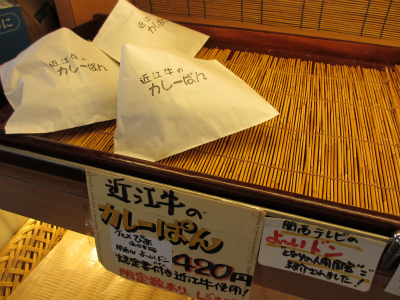 近江牛の
カレーぱん
近江牛の
カレーぱん
近江牛の
カレーぱん
近江牛の
カレーぱん
420円
近江牛使用!
関西テレビの
よ〜いドン
となりの人間国宝で
紹介されました!